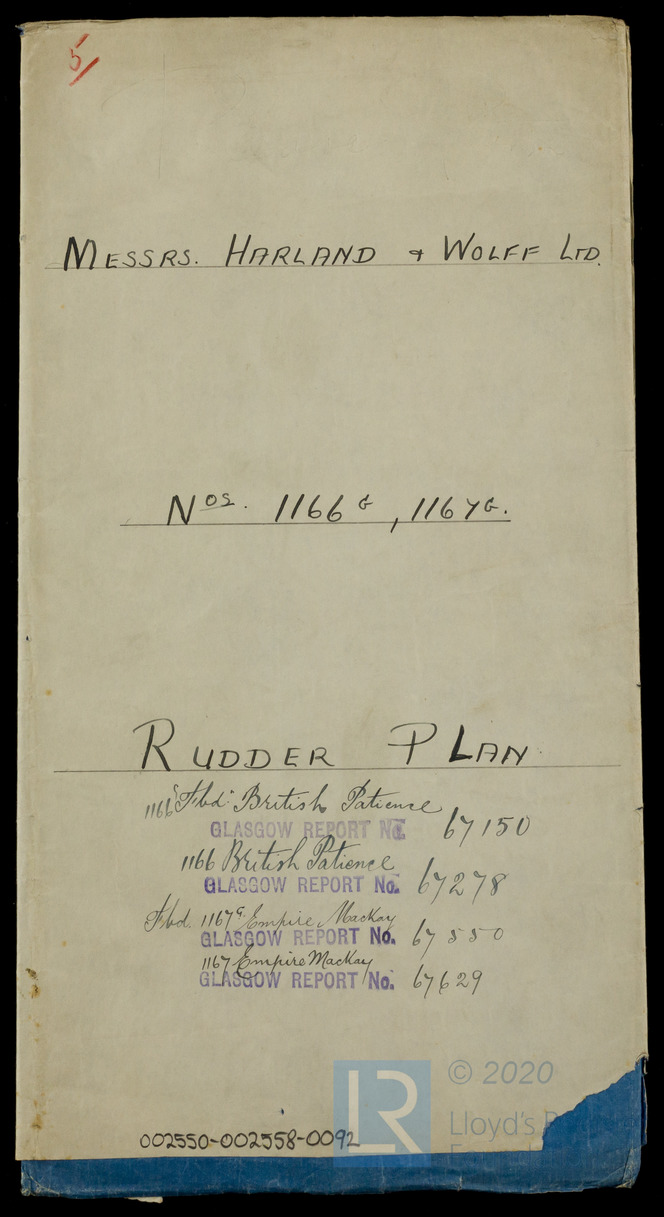 5/
MESSRS. HARLAND & WOLFF LTD.
NOS. 1166G, 1167G.
RUDDER PLAN
1166G Fbd. British Patience
GLASGOW REPORT No. 67150
1166 British Patience
GLASGOW REPORT No. 67278
Fbd. 1167G. Empire MacKay
GLASGOW REPORT No. 67550
1167 Empire MacKay
GLASGOW REPORT No. 67629
© 2020
LR Lloyd's
002550-002558-0092